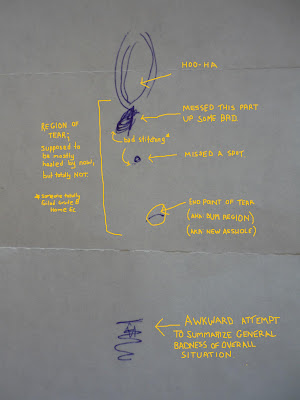 HOO-HA
MESSED THIS PART
UP SOME BAD.
REGION OF
TEAR;
supposed to
be mostly
healed by now,
but totally NOT.
bad stitching*
MISSED A SPOT
* Someone totally
failed Grade 8
Home Ec
END POINT OF TEAR
(AKA BUM REGION)
(AKA NEW ASSHOLE)
AWKWARD ATTEMPT
TO SUMMARIZE GENERAL
BADNESS OF OVERALL
SITUATION